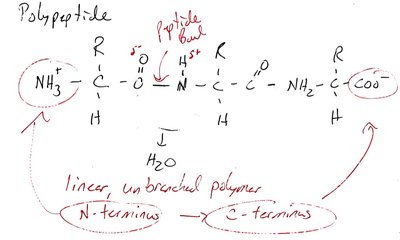 Polypeptide
Peptide
Bond
R δ- O H δ+ R O R
NH3+ - C - C - N - C - C - NH2 - C - COO-
H H H
↓
H2O
linear, unbranched polymer
N-terminus → C-terminus